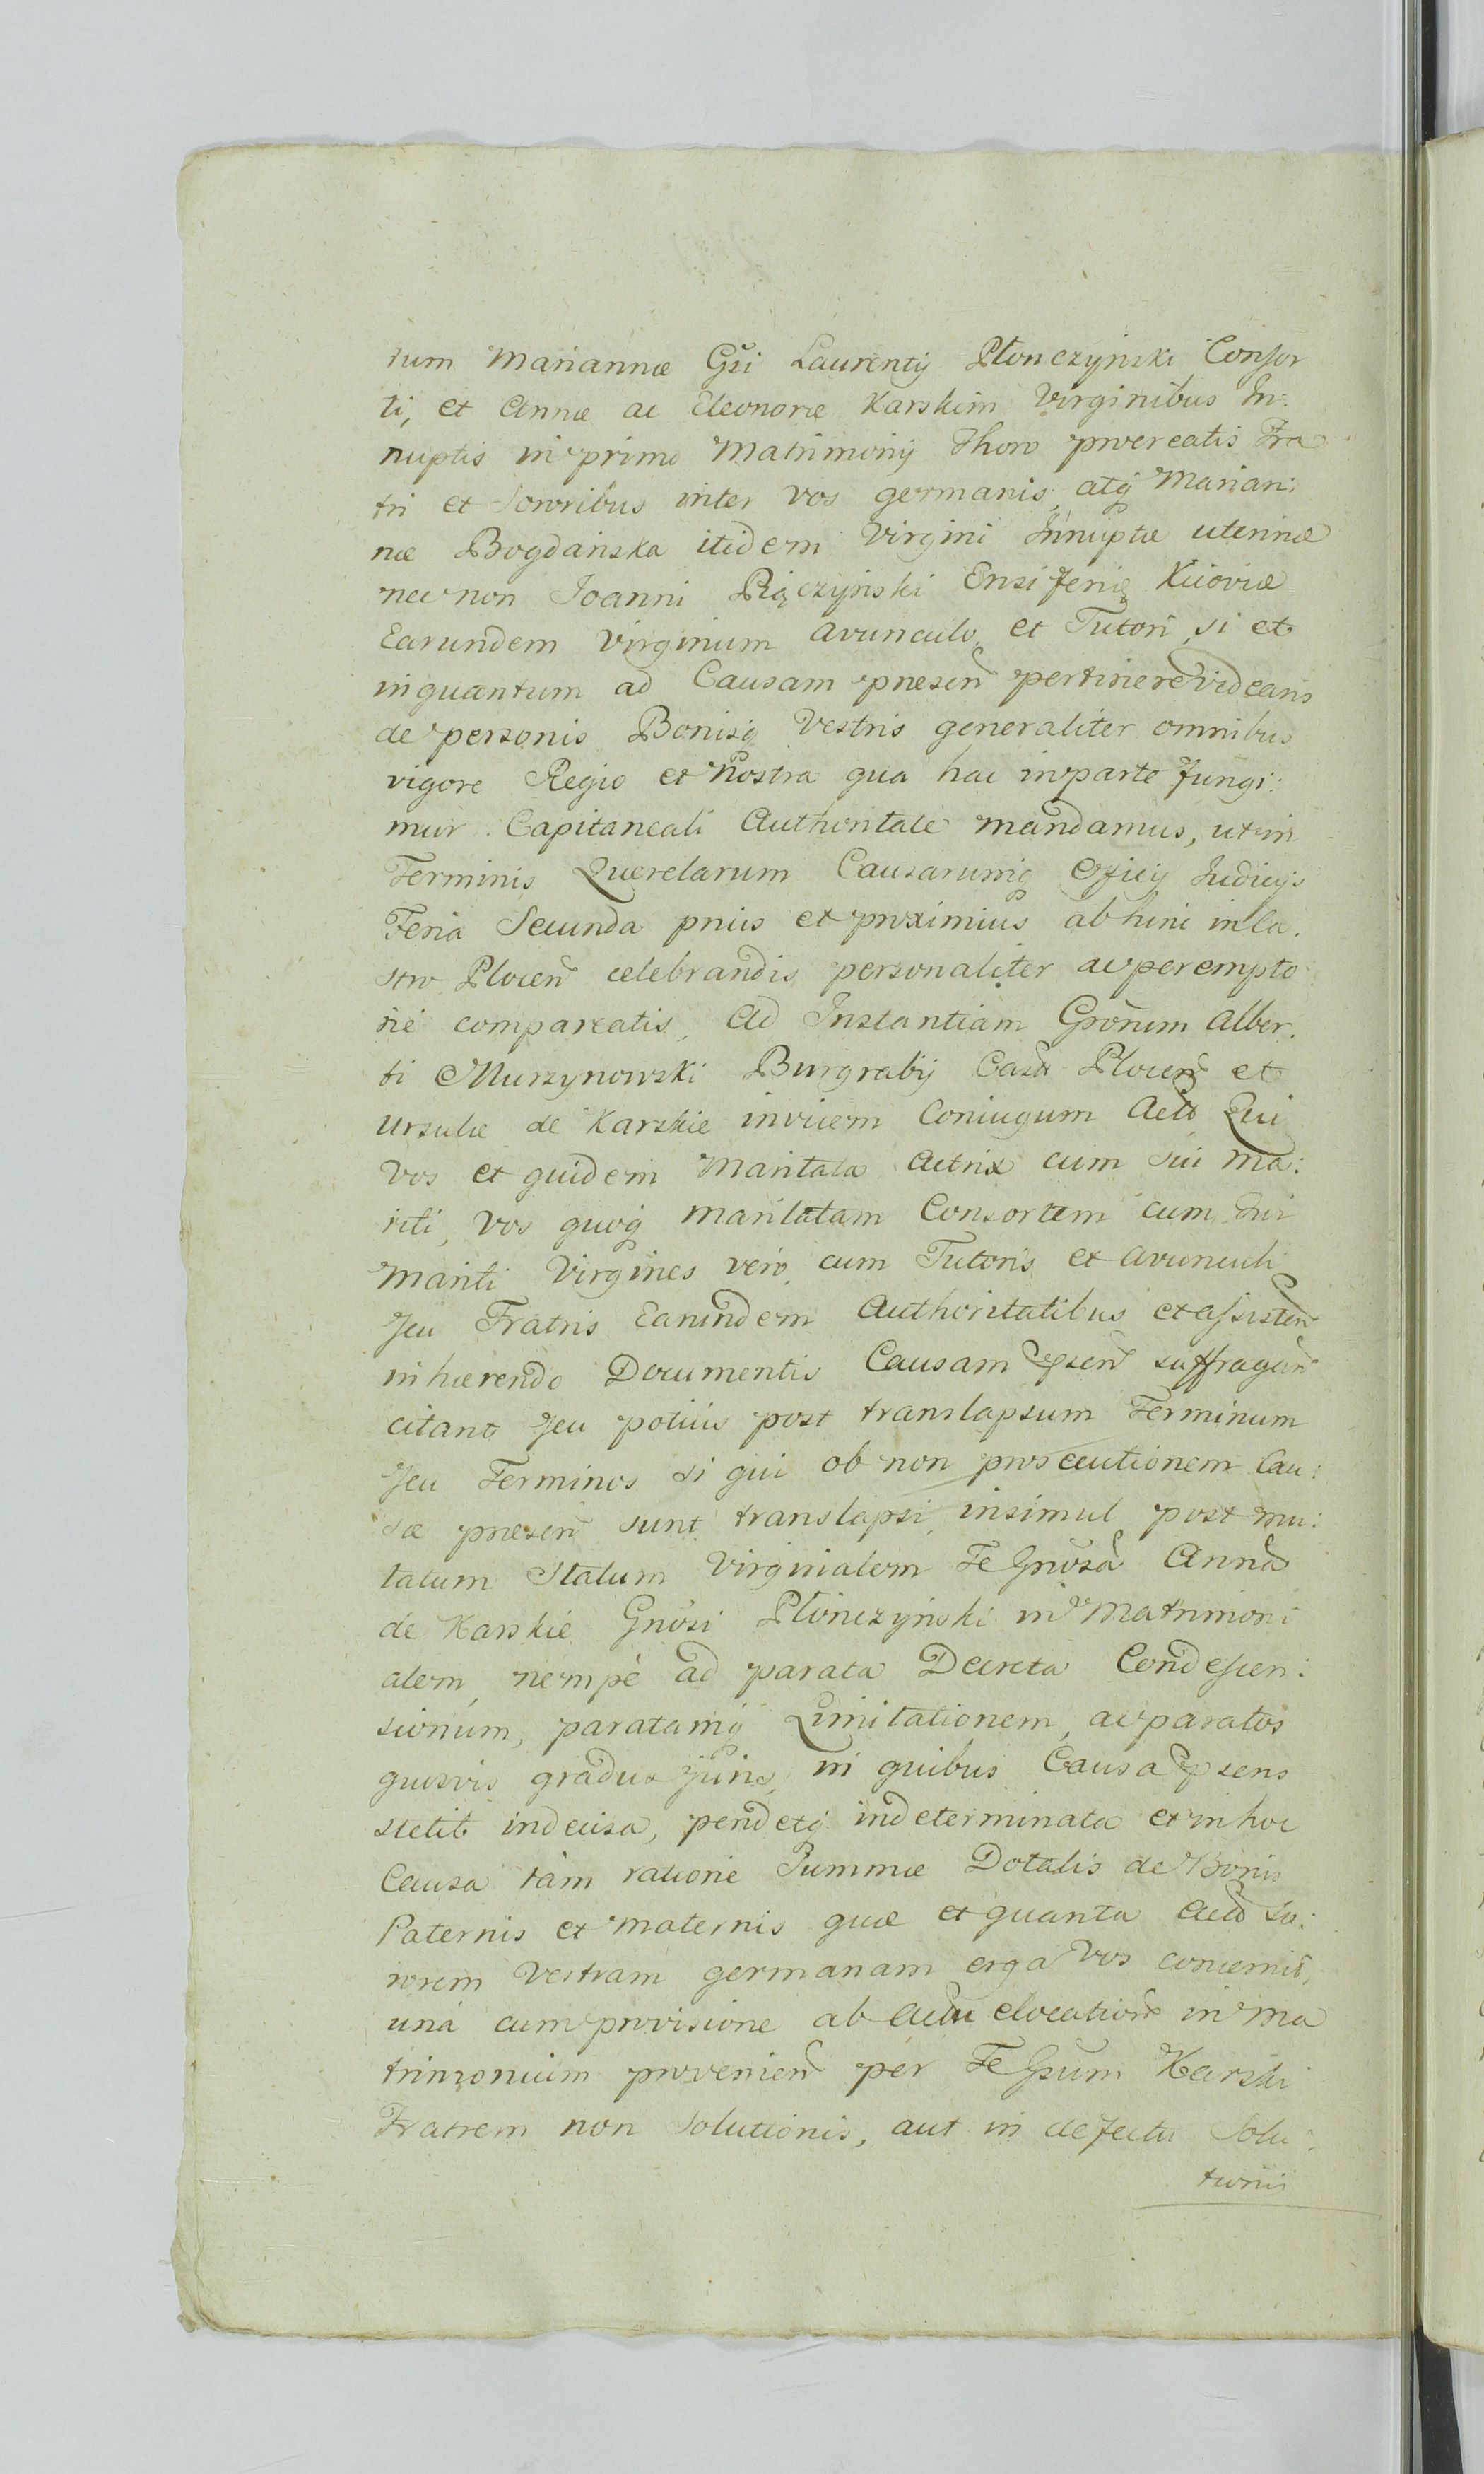 rum Mariannæ Gsi Laurentij Płonczynski Consor
ti, et Annæ ac Eleonoræ Karskim Virginibus In:
nuptis in primo Matrimonij Thoro procreatis Fra
tri et Sororibus inter vos germanis, atq Marian:
næ Bogdańska itidem Virgini Innuptæ uterinæ
nec non Joanni Pięczyński Ensiferię Kiioviæ
Earundem Virginum Avunculo et Tutori, si et
inquantum ad Causam præsen pertinere videaris
de personis Bonisq Vestris generaliter omnibus
vigore Regio et Nostra qua hac in parte fungi:
mur Capitaneali Authoritate mandamus, ut in
Terminis Querelarum Causarumq Officij Judicijs
Feria Secunda prius et proximius abhinc in Ca.
stro Plocen celebrandis personaliter ac perempto
rie compareatis, Ad Instantiam Gronum Alber.
ti Murzynowski Burgrabij Castr Plocen et
Ursulæ de Karskie invicem Coniugum Acto Qui
vos et quidem Maritata Actrix cum sui Ma:
riti, vos quoq maritatam Consortem cum sui
Mariti Virgines vero cum Tutoris et Avunculi
seu Fratris Earundem Authoritatibus et assisten
inhærendo Documentis Causam psen suffragan
citant seu potius post translapsum Terminum
seu Terminos si qui ob non prosecutionem Cau:
sæ præsen sunt translapsi, insimul post mu:
tatum Statum Virginalem Te Gnosa Anna
de Karskie Gnosi Płonczyński in Matrimoni
alem, nempè ad parata Decreta Condescen:
sionum, paratamq Limitationem, ac paratos
quosvis gradus juris, in quibus Causa psens
stetit indecisa, pendetq indeterminata et in hoc
Causa tàm ratione Summæ Dotalis de Bonis
Paternis et Maternis quæ et quanta Acto So:
rorem Vestram germanam erga vos concernit,
unà cum provisione ab Actu elocation in Ma
trimonium provenien per Te Gsum Karski
Fratrem non Solutionis, aut in defectu Solu:
tionis